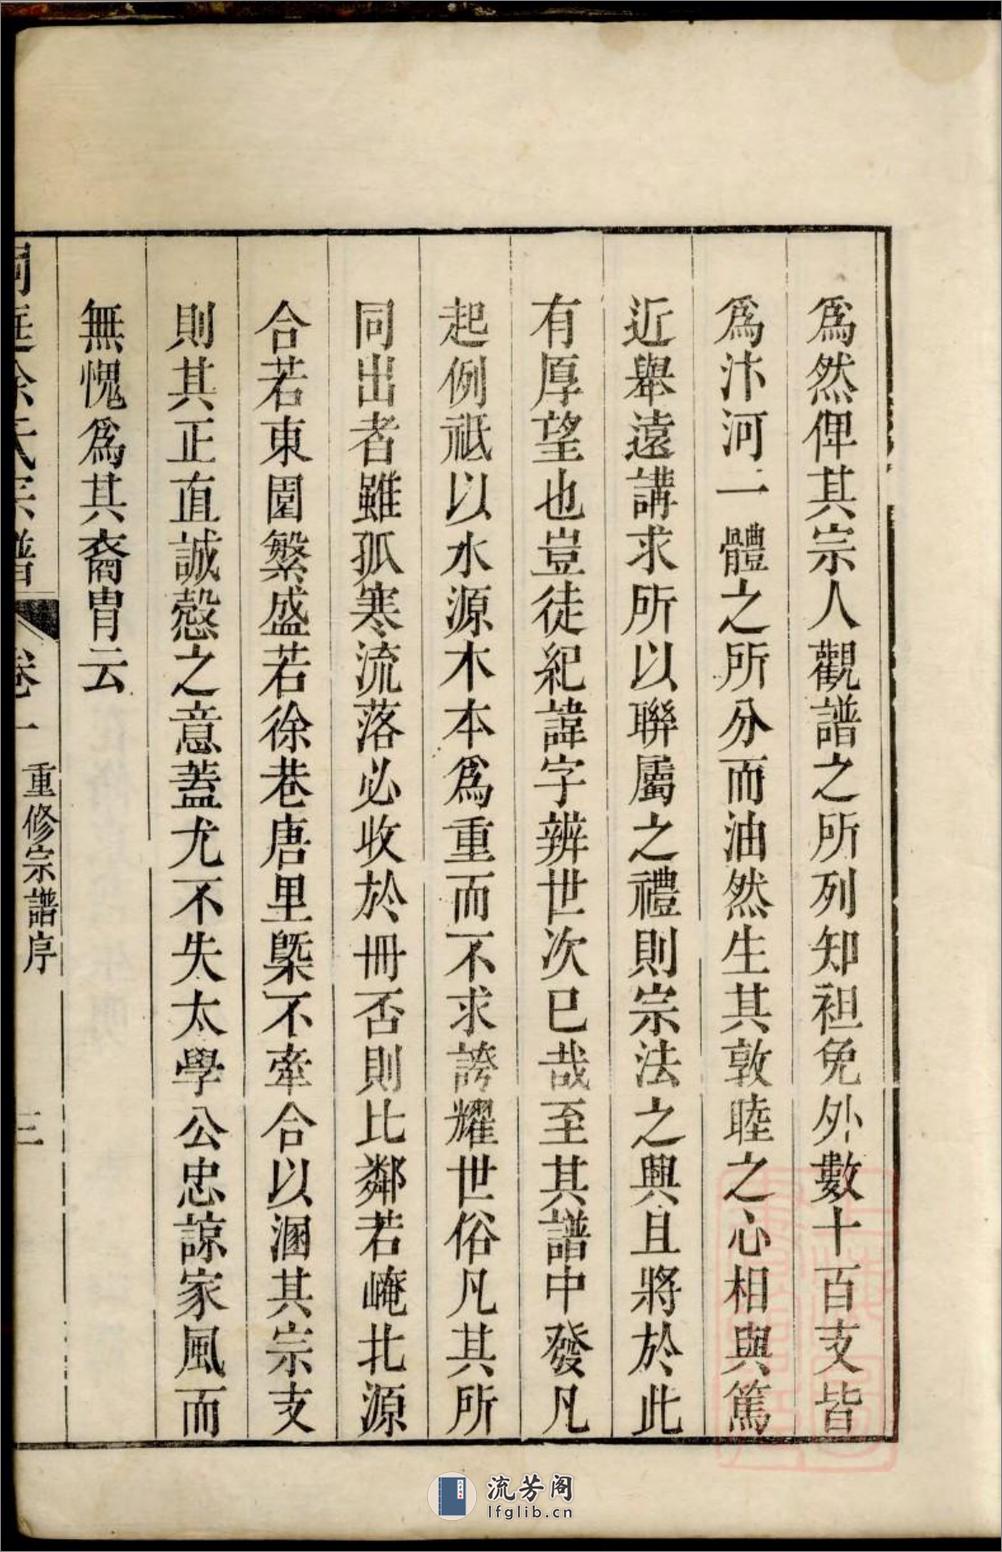 爲然俾其宗人觀譜之所列知袒免外數十百支皆
爲汴河一體之所分而油然生其敦睦之心相與篤
近舉遠講求所以聯屬之禮則宗法之興且將於此
有厚望也豈徒紀諱字辨世次已哉至其譜中發凡
起例祇以水源木本爲重而不求誇耀世俗凡其所
同出者雖孤寒流落必收於冊否則比鄰若崦北源
合若東園繁盛若徐巷唐里槩不牽合以溷其宗支
則其正直誠慤之意蓋尤不失太學公忠諒家風而
無愧爲其裔胄云
洞庭徐氏宗譜 卷一 重修宗譜序 三
流芳阁
lfglib.cn